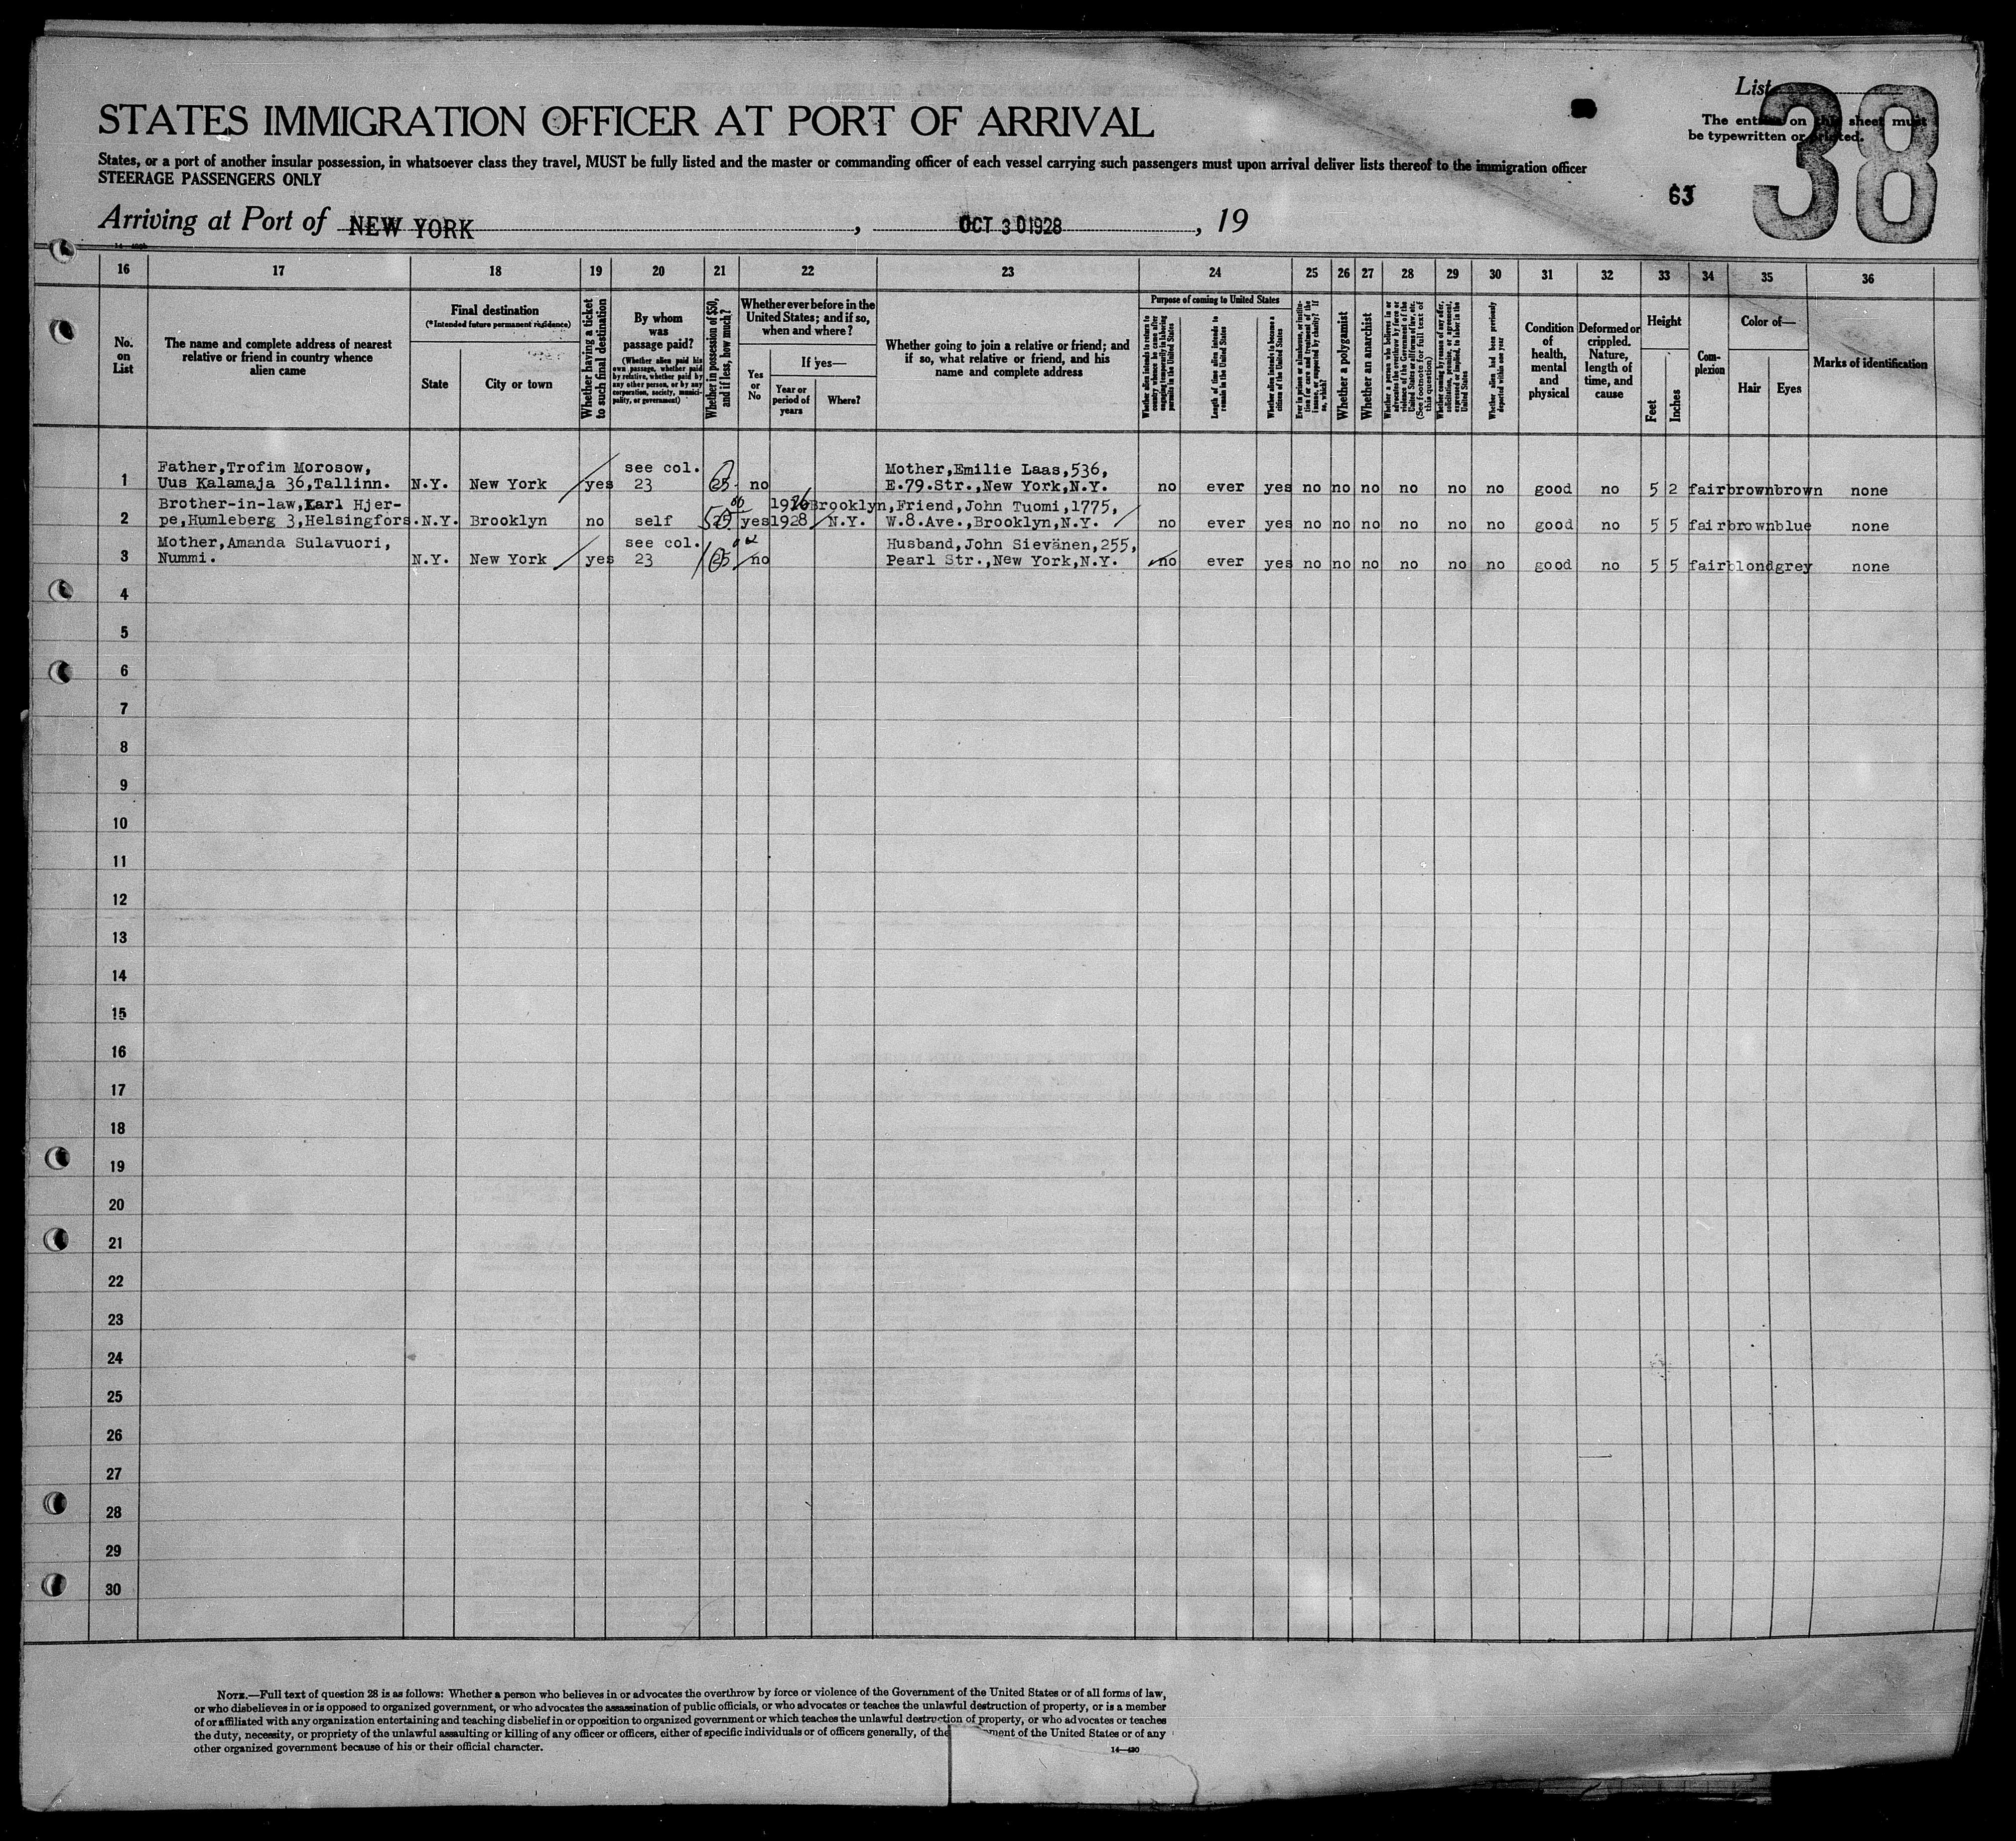 List
38
The entries on this sheet must
be typewritten or printed.
STATES IMMIGRATION OFFICER AT PORT OF ARRIVAL
States, or a port of another insular possession, in whatsoever class they travel, MUST be fully listed and the master or commanding officer of each vessel carrying such passengers must upon arrival deliver lists thereof to the immigration officer
STEERAGE PASSENGERS ONLY
63
Arriving at Port of NEW YORK , OCT 3 0 1928 , 19
16 17 18 19 20 21 22 23 24 25 26 27 28 29 30 31 32 33 34 35 36
No.
on
List
The name and complete address of nearest
relative or friend in country whence
alien came
Final destination
(*Intended future permanent residence)
State
City or town
Whether having a ticket
to such final destination
By whom
was
passage paid?
(Whether alien paid his
own passage, whether paid
by relative, whether paid by
any other person, or by any
corporation, society, munici-
pality, or government)
Whether in possession of $50,
and if less, how much?
Whether ever before in the
United States; and if so,
when and where?
Yes
or
No
If yes—
Year or
period of
years
Where?
Whether going to join a relative or friend; and
if so, what relative or friend, and his
name and complete address
Purpose of coming to United States
Whether alien intends to return to
country whence he came after
engaging temporarily in laboring
pursuits in the United States
Length of time alien intends to
remain in the United States
Whether alien intends to become a
citizen of the United States
Ever in prison or almshouse, or institu-
tion for care and treatment of the
insane, or supported by charity? If
so, which?
Whether a polygamist
Whether an anarchist
Whether a person who believes in or
advocates the overthrow by force or
violence of the Government of the
United States or all forms of law, etc.
(See footnote for full text of
this question)
Whether coming by reason of any offer,
solicitation, promise, or agreement,
expressed or implied, to labor in the
United States
Whether alien had been previously
deported within one year
Condition
of
health,
mental
and
physical
Deformed or
crippled.
Nature,
length of
time, and
cause
Height
Feet
Inches
Com-
plexion
Color of—
Hair
Eyes
Marks of identification
Father,Trofim Morosow, see col. Mother,Emilie Laas,536,
1 Uus Kalamaja 36,Tallinn. N.Y. New York yes 23 25 no E.79.Str.,New York,N.Y. no ever yes no no no no no no good no 5 2 fair brown brown none
Brother-in-law,Karl Hjer- 1926 Brooklyn, Friend,John Tuomi,1775,
2 pe,Humleberg 3,Helsingfors. N.Y. Brooklyn no self yes 1928 N.Y. W.8.Ave.,Brooklyn,N.Y. no ever yes no no no no no no good no 5 5 fair brown blue none
Mother,Amanda Sulavuori, see col. Husband,John Sievänen,255,
3 Nummi. N.Y. New York yes 23 25 no Pearl Str.,New York,N.Y. no ever yes no no no no no no good no 5 5 fair blond grey none
4
5
6
7
8
9
10
11
12
13
14
15
16
17
18
19
20
21
22
23
24
25
26
27
28
29
30
NOTE.—Full text of question 28 is as follows: Whether a person who believes in or advocates the overthrow by force or violence of the Government of the United States or of all forms of law,
or who disbelieves in or is opposed to organized government, or who advocates the assassination of public officials, or who advocates or teaches the unlawful destruction of property, or is a member
of or affiliated with any organization entertaining and teaching disbelief in or opposition to organized government or which teaches the unlawful destruction of property, or who advocates or teaches
the duty, necessity, or propriety of the unlawful assaulting or killing of any officer or officers, either of specific individuals or of officers generally, of the ment of the United States or of any
other organized government because of his or their official character.
14—420